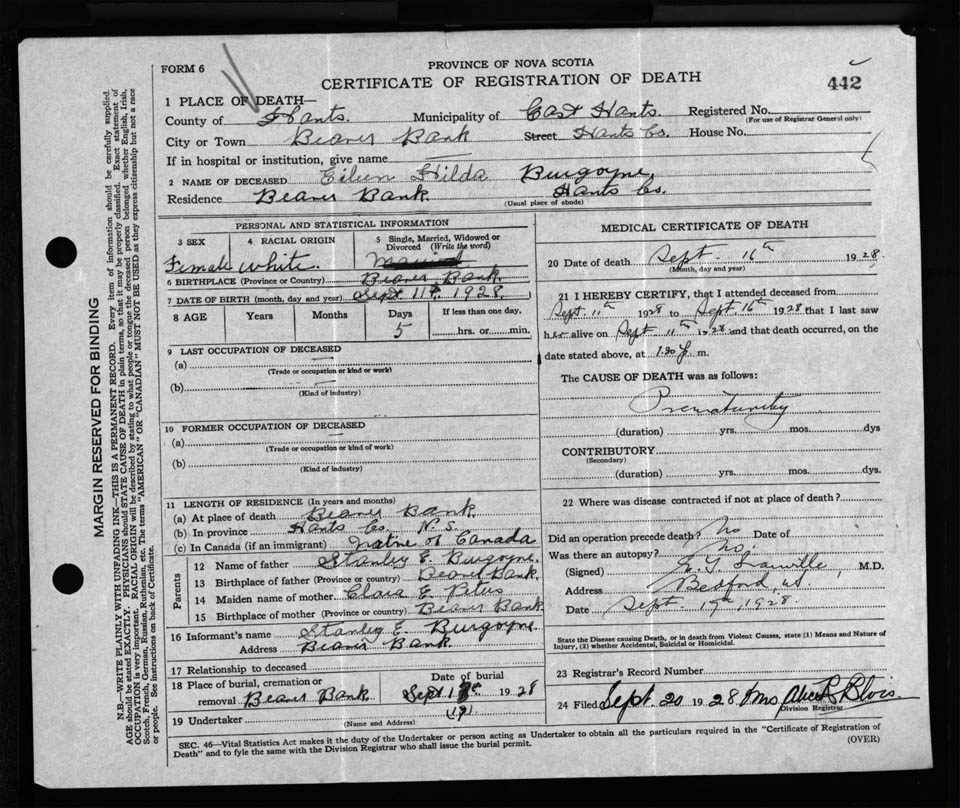 FORM 6
PROVINCE OF NOVA SCOTIA
CERTIFICATE OF REGISTRATION OF DEATH
442
1 PLACE OF DEATH—
County of Hants. Municipality of East Hants. Registered No.
(For use of Registrar General only)
City or Town Beaver Bank Street Hants Co. House No.
If in hospital or institution, give name
2 NAME OF DECEASED Eileen Hilda Burgoyne,
Residence Beaver Bank. Hants Co.
(Usual place of abode)
PERSONAL AND STATISTICAL INFORMATION
3 SEX 4 RACIAL ORIGIN 5 Single, Married, Widowed or Divorced (Write the word)
Female white.
6 BIRTHPLACE (Province or Country) Beaver Bank.
7 DATE OF BIRTH (month, day and year) Sept 11th, 1928,
8 AGE Years Months Days If less than one day,
5 hrs. or min.
9 LAST OCCUPATION OF DECEASED
(a)
(Trade or occupation or kind or work)
(b)
(Kind of industry)
10 FORMER OCCUPATION OF DECEASED
(a)
(Trade or occupation or kind of work)
(b)
(Kind of industry)
11 LENGTH OF RESIDENCE (In years and months)
(a) At place of death Beaver Bank
(b) In province Hants Co. N.S.
(c) In Canada (if an immigrant) Native of Canada
Parents
12 Name of father Stanley E. Burgoyne.
13 Birthplace of father (Province or country) Beaver Bank.
14 Maiden name of mother Clara E. Peters
15 Birthplace of mother (Province or country) Beaver Bank
16 Informant's name Stanley E. Burgoyne.
Address Beaver Bank.
17 Relationship to deceased
18 Place of burial, cremation or removal Beaver Bank Date of burial Sept 1928
19 Undertaker
(Name and Address)
MEDICAL CERTIFICATE OF DEATH
20 Date of death Sept. 16th 1928,
(Month, day and year)
21 I HEREBY CERTIFY, that I attended deceased from
Sept. 11th 1928 to Sept. 16th 1928 that I last saw
her alive on Sept 11th 1928 and that death occurred, on the
date stated above, at 1.30 p. m.
The CAUSE OF DEATH was as follows:
Prematurity
(duration) yrs. mos. dys
CONTRIBUTORY
(Secondary)
(duration) yrs. mos. dys.
22 Where was disease contracted if not at place of death?
Did an operation precede death? No Date of
Was there an autopsy? No,
(Signed) M.D.
Address Bedford NS
Date Sept. 17th, 1928
State the Disease causing Death, or in death from Violent Causes, state (1) Means and Nature of
Injury, (2) whether Accidental, Suicidal or Homicidal.
23 Registrar's Record Number
24 Filed Sept. 20 1928 Mrs Blois.
Division Registrar
SEC. 46—Vital Statistics Act makes it the duty of the Undertaker or person acting as Undertaker to obtain all the particulars required in the "Certificate of Registration of
Death" and to fyle the same with the Division Registrar who shall issue the burial permit.
(OVER)
MARGIN RESERVED FOR BINDING
N.B.—WRITE PLAINLY WITH UNFADING INK—THIS IS A PERMANENT RECORD. Every item of information should be carefully supplied.
AGE should be stated EXACTLY. PHYSICIANS should STATE CAUSE OF DEATH in plain terms, so that it may be properly classified. Exact statement of
OCCUPATION is very important. RACIAL ORIGIN will be described by stating to what people or tongue the deceased person belonged whether English, Irish,
Scotch, French, German, Russian, Ruthenian, etc. The terms "AMERICAN" OR "CANADIAN" MUST NOT BE USED as they express citizenship but not a race
or people. See instructions on back of Certificate.